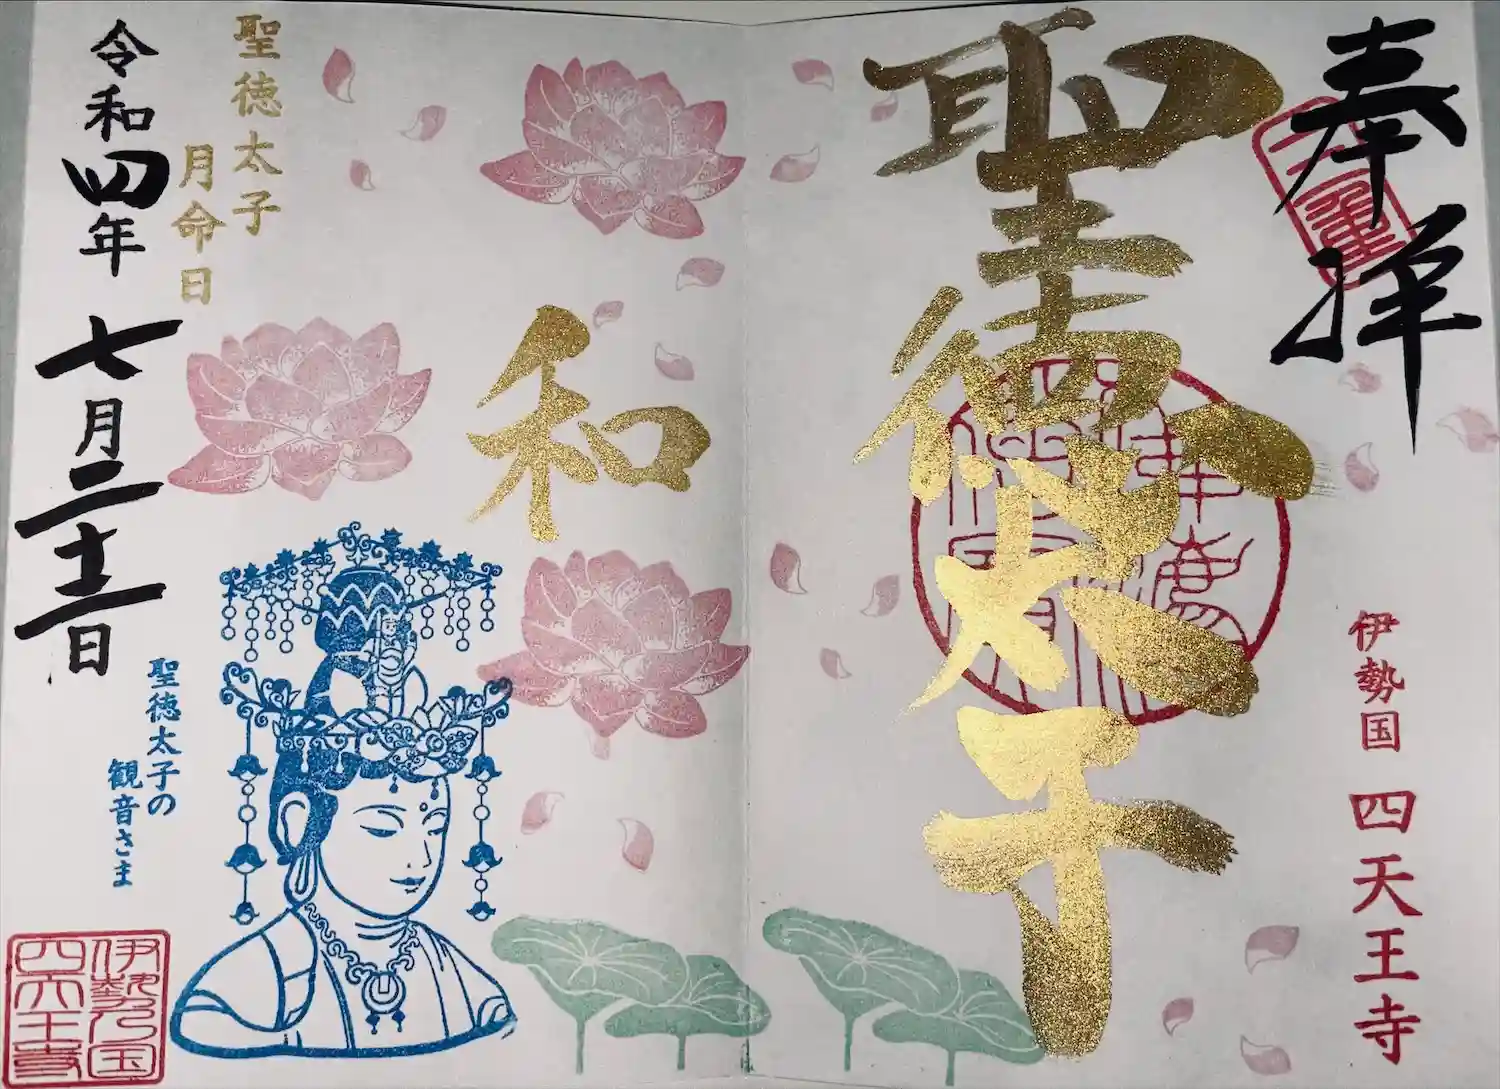 奉拝
聖徳太子
伊勢国 四天王寺
和
聖徳太子
月命日
令和四年 七月二十二日
聖徳太子の
観音さま
伊勢之国
四天王寺